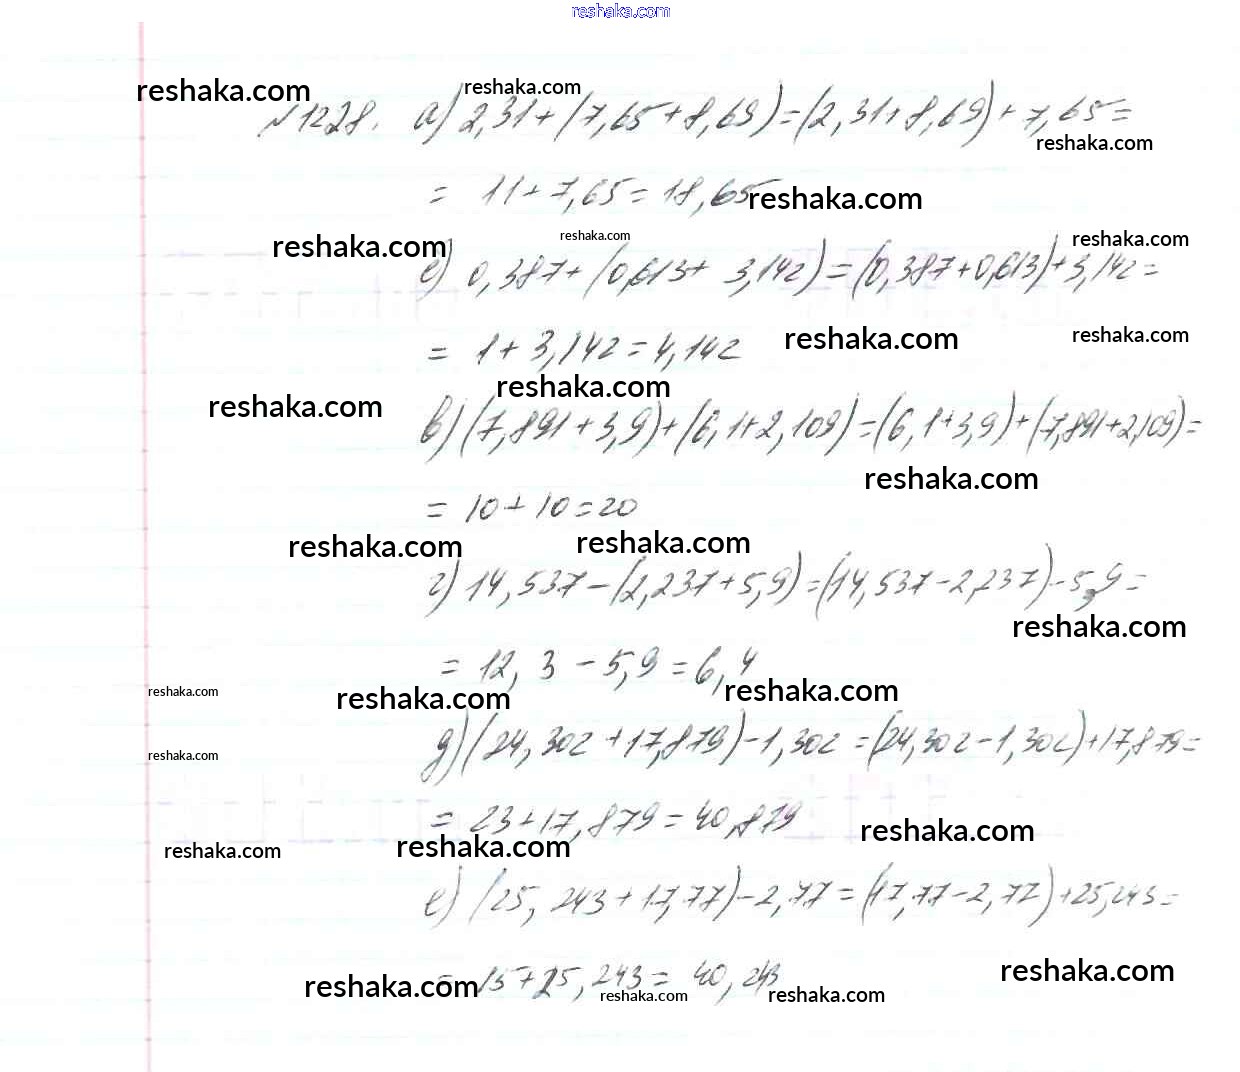 reshaka.com
reshaka.com reshaka.com
№1228. а) 2,31+(7,65+8,69)=(2,31+8,69)+7,65=
reshaka.com
= 11+7,65=18,65 reshaka.com
reshaka.com reshaka.com reshaka.com
е) 0,387+(0,613+3,142)=(0,387+0,613)+3,142=
= 1+3,142=4,142 reshaka.com reshaka.com
reshaka.com reshaka.com
в)(7,891+3,9)+(6,1+2,109)=(6,1+3,9)+(7,891+2,109)=
reshaka.com
= 10+10=20
reshaka.com reshaka.com
г) 14,537-(2,237+5,9)=(14,537-2,237)-5,9=
reshaka.com
= 12,3-5,9=6,4
reshaka.com reshaka.com reshaka.com
д)(24,302+17,879)-1,302=(24,302-1,302)+17,879=
reshaka.com
= 23+17,879=40,879 reshaka.com
reshaka.com reshaka.com
е)(25,243+17,77)-2,77=(17,77-2,77)+25,243=
reshaka.com = 15+25,243=40,243 reshaka.com
reshaka.com reshaka.com